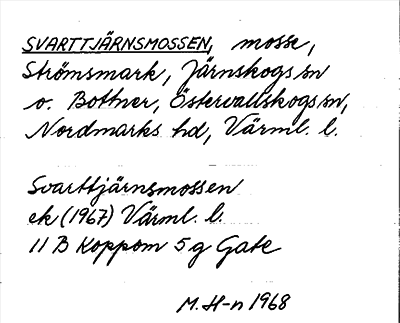 SVARTTJÄRNSMOSSEN, mosse,
Strömsmark, Järnskogs sn
o. Bottner, Östervallskogs sn,
Nordmarks hd, Värml. l.
Svarttjärnsmossen
ek (1967) Värml. l.
11 B Koppom 5 g Gate
M. H-n 1968